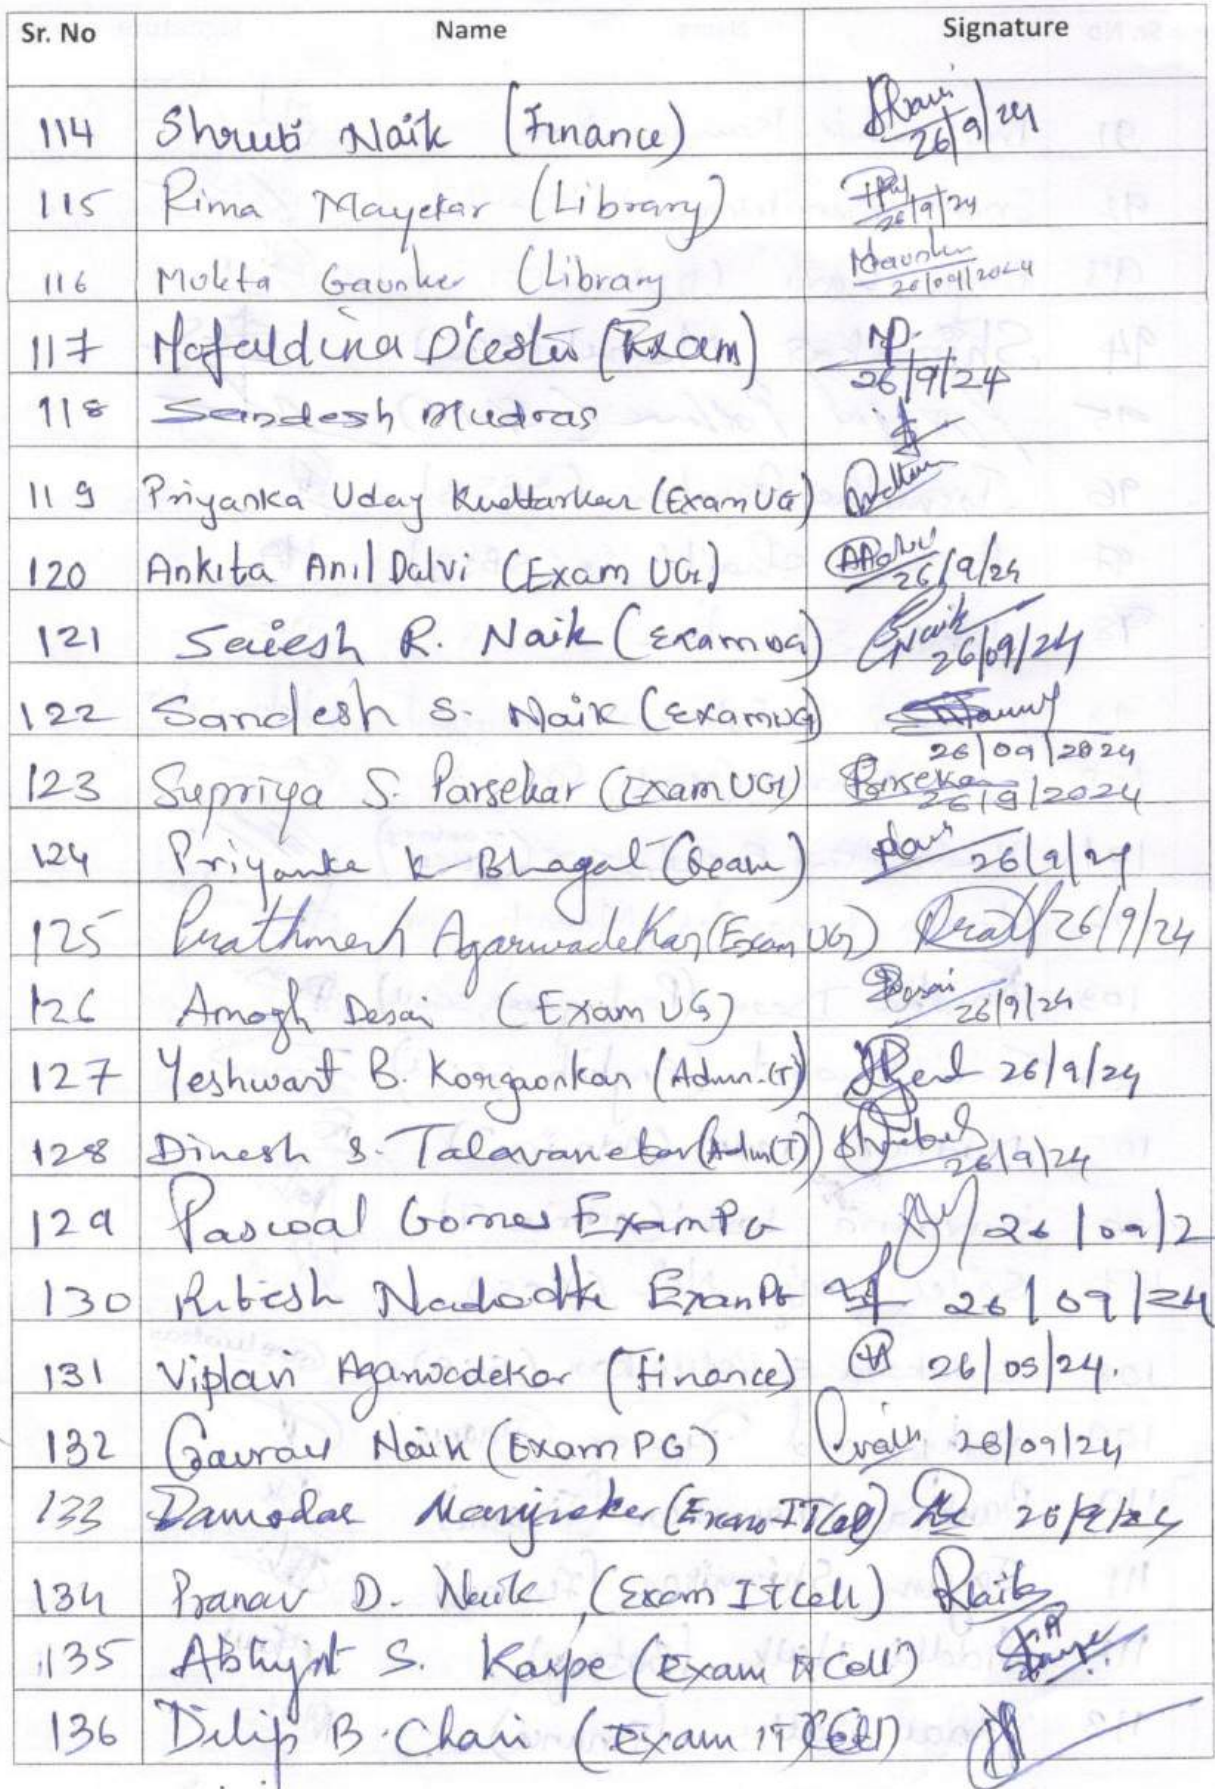 Sr. No Name Signature
114 Shruti Naik (Finance) 26/9/24
115 Rima Mayekar (Library) 26/9/24
116 Mukta Gaunker (Library Gaunker 26/09/2024
117 Mafaldina D'Costa (Exam) MD. 26/9/24
118 Sandesh Mudras
119 Priyanka Uday Kudtarkar (Exam UG)
120 Ankita Anil Dalvi (Exam UG) AADalvi 26/9/24
121 Saiesh R. Naik (Exam UG) Naik 26/09/24
122 Sandesh S. Naik (Exam UG) 26/09/2024
123 Supriya S. Parsekar (Exam UG) Parsekar 26/9/2024
124 Priyanka K Bhagat (Exam) 26/9/24
125 Prathmesh Agarwadekar (Exam UG) 26/9/24
126 Amogh Desai (Exam UG) Desai 26/9/24
127 Yeshwant B. Korgaonkar (Admn.(T) 26/9/24
128 Dinesh S. Talavanekar (Adm(T)) 26/9/24
129 Pascoal Gomes Exam PG 26/09/2
130 Ritesh Exam PG 26/09/24
131 Viplavi Agarwadekar (Finance) 26/09/24.
132 Gaurav Naik (Exam PG) 26/09/24
133 Damodar Manjrekar (Exam-IT Cell) 26/9/24
134 Pranav D. Naik (Exam IT Cell) Naik
135 Abhijit S. Karpe (Exam IT Cell) Karpe
136 Dilip B. Chari (Exam IT Cell)